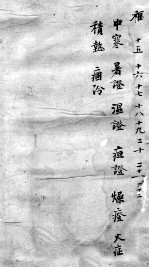 十五 十六 十七 十八 十九 二十 二十一 二十二
中寒 暑證 濕證 痘證 燥證 火症
積熱 二便